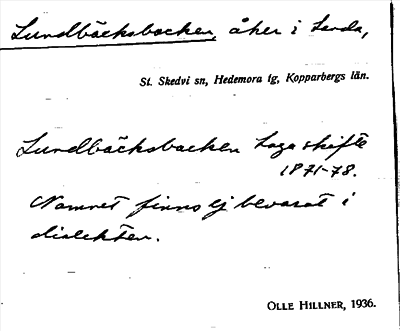 Lundbäcksbacken, åker i Landa,
St. Skedvi sn, Hedemora tg, Kopparbergs län.
Lundbäcksbacken Laga skifte
1871-78.
Namnet finns ej bevarat i
dialekten.
OLLE HILLNER, 1936.